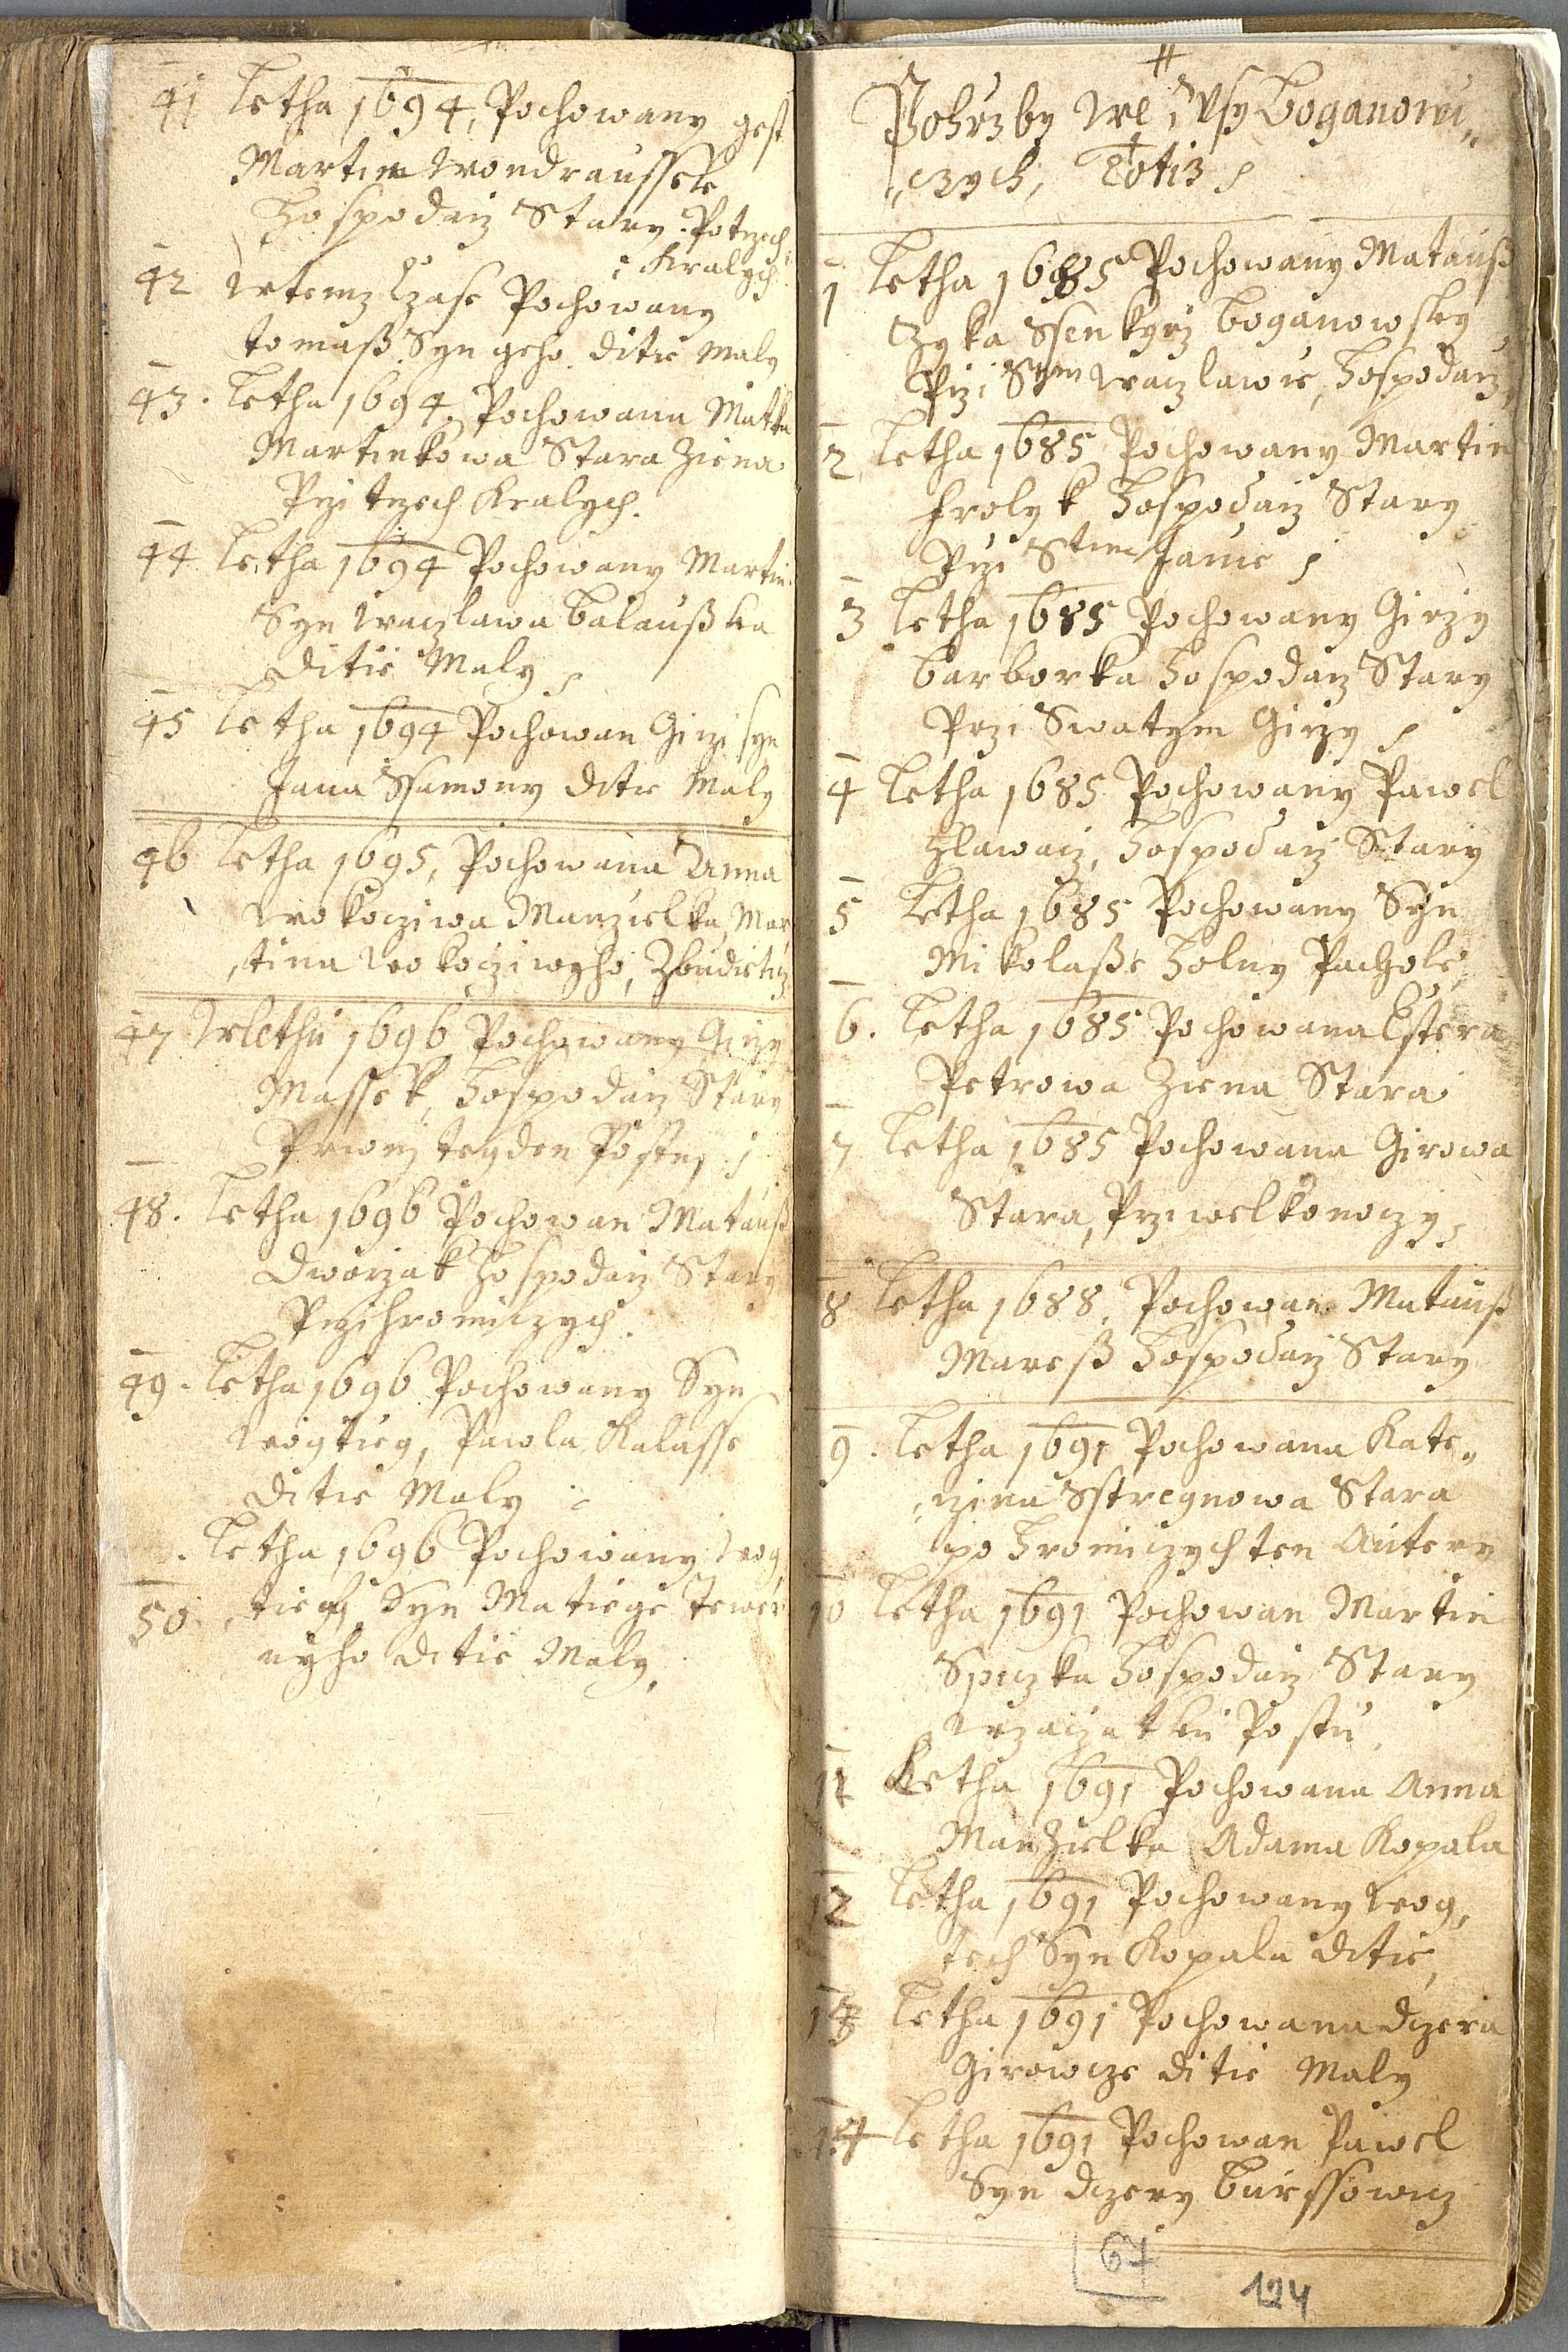 41 Letha 1694, Pochowany gest
Martin Wondraussek
Hospodarz Stary. Po trzech
Kralych
42 Wtemz Czase Pochowany
tomass Syn geho ditie Maly
43. Letha 1694. Pochowana Matka
Martinkowa Stara Ziena
Przi trzech Kralych.
44 Letha 1694 Pochowany Martin
Syn Waczlawa balausska
ditie Maly
45 Letha 1694 Pochowan Girzi syn
Jana Ssamony ditie Maly
46 Letha 1695, Pochowana Anna
Wokocziwa Manzielka, Mar
tina Wokocziwyho,
47 Wlethu 1696 Pochowany Girzy
Massek, Hospodarz Stary
Prwnj teyden Postu
48. Letha 1696 Pochowan Matauss
Dworzak Hospodarz Stary
Przi hromiczych.
49. Letha 1696 Pochowany Syn
Wogtieg, Pawla Kalasse
ditie Maly
. Letha 1696 Pochowany Wog
50 tiech Syn Matiege
nyho ditie Maly,
Pohrzby we Wsy boganowi„
„czych, Totiz
1 Letha 1685 Pochowany Matauss
Zyka Ssenkyrz boganowsky
Przi Stem Waczlawie, Hospodarz,
2 Letha 1685 Pochowany Martin
frolyk Hospodarz Stary
Przi Stem Janie
3 Letha 1685 Pochowany Girzy
barborka Hospodarz Stary
Przi Swatym Girzy
4 Letha 1685 Pochowany Pawel
Hlawacz, Hospodarz Stary
5 Letha 1685 Pochowany Syn
Mikolasse Holny Pachole,
6. Letha 1685 Pochowana Estera
Petrowa Ziena Stara
7 Letha 1685 Pochowana Girowa
Stara, Przi welkonoczy
8 Letha 1688, Pochowan Matauss
Maress Hospodarz Stary
9. Letha 1691 Pochowana Kate„
„rzina Sstregnowa Stara
po Hromiczych ten Autery
10 Letha 1691 Pochowan Martin
Spiczka Hospodarz Stary
Wzaczatku Postu
11 Letha 1691 Pochowana Anna
Manzielka Adama Kopala
12 Letha 1691 Pochowany Wog,
tech Syn Kopala ditie,
13 Letha 1691 Pochowana dczera
Girowcze ditie Maly
14 Letha 1691 Pochowan Pawel
Syn dczery burssowicz
67
124